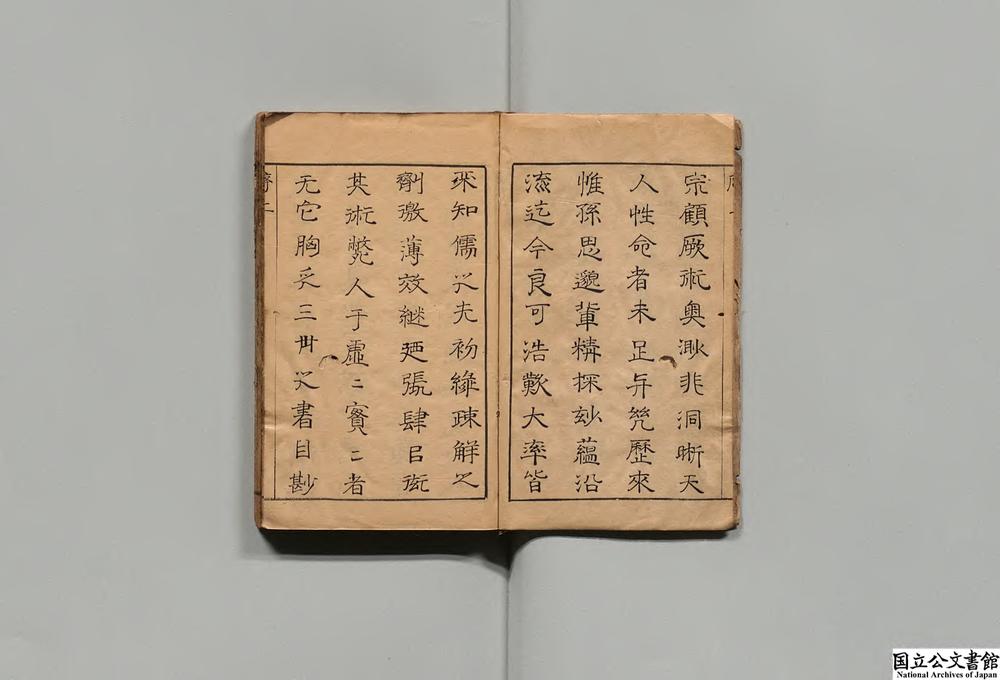 宗顧厥術奥渺非洞晰天
人性命者未足与究歷來
惟孫思邈軰精探玅蘊沿
流迄今良可浩歎大率皆
㳄知儒㞢夫礿緣疎解之
劑激薄效継廼張肆㠯衒
其術斃人于虚〻實〻者
无它胸乏三丗㞢書目尠
国立公文書館
National Archives of Japan